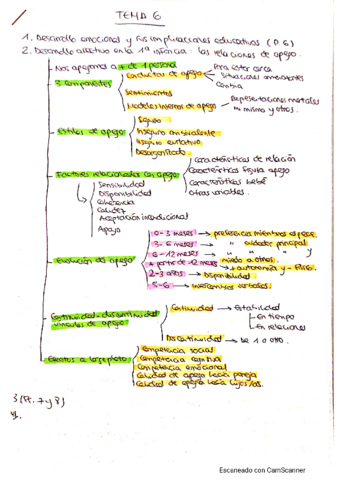 TEMA 6
1. Desarrollo emociones y sus implicaciones educativas (P. 6)
2. Desarrollo afectivo en la 1ª infancia: las relaciones de apego.
Nos apegamos a + de 1 persona
3 componentes
Conductas de apego
Para estar cerca
Situaciones amenazantes
Contra
Sentimientos
Modelos internos de apego
Representaciones mentales
mi mismo y otros.
Estilos de apego
Seguro
Inseguro ambivalente
Inseguro evitativo
Desorganizado
Factores relacionados con apego
Sensibilidad
Disponibilidad
Coherencia
Calidez
Aceptación incondicional
Apoyo
Características de relación
Características figura apego
Características bebé
Otras variables.
Evolución del apego
0-3 meses → preferencia miembros especie.
3-6 meses → " cuidador principal
6-12 meses → " " y
miedo a otros.
A partir de 12 meses → + autonomía y - físic.
2-3 años → Disponibilidad
5-6 → intercambios verbales.
Continuidad-discontinuidad
vínculos de apego
Continuidad → Estabilidad
En tiempo
En relaciones
Discontinuidad → De 1 a otro.
Efectos a largo plazo
Competencia social
Competencia cognitiva
Competencia emocional
Calidad de apego hacia pareja
Calidad de apego hacia hijos/as.
3 (Pt. 7 y 8)
4.
Escaneado con CamScanner